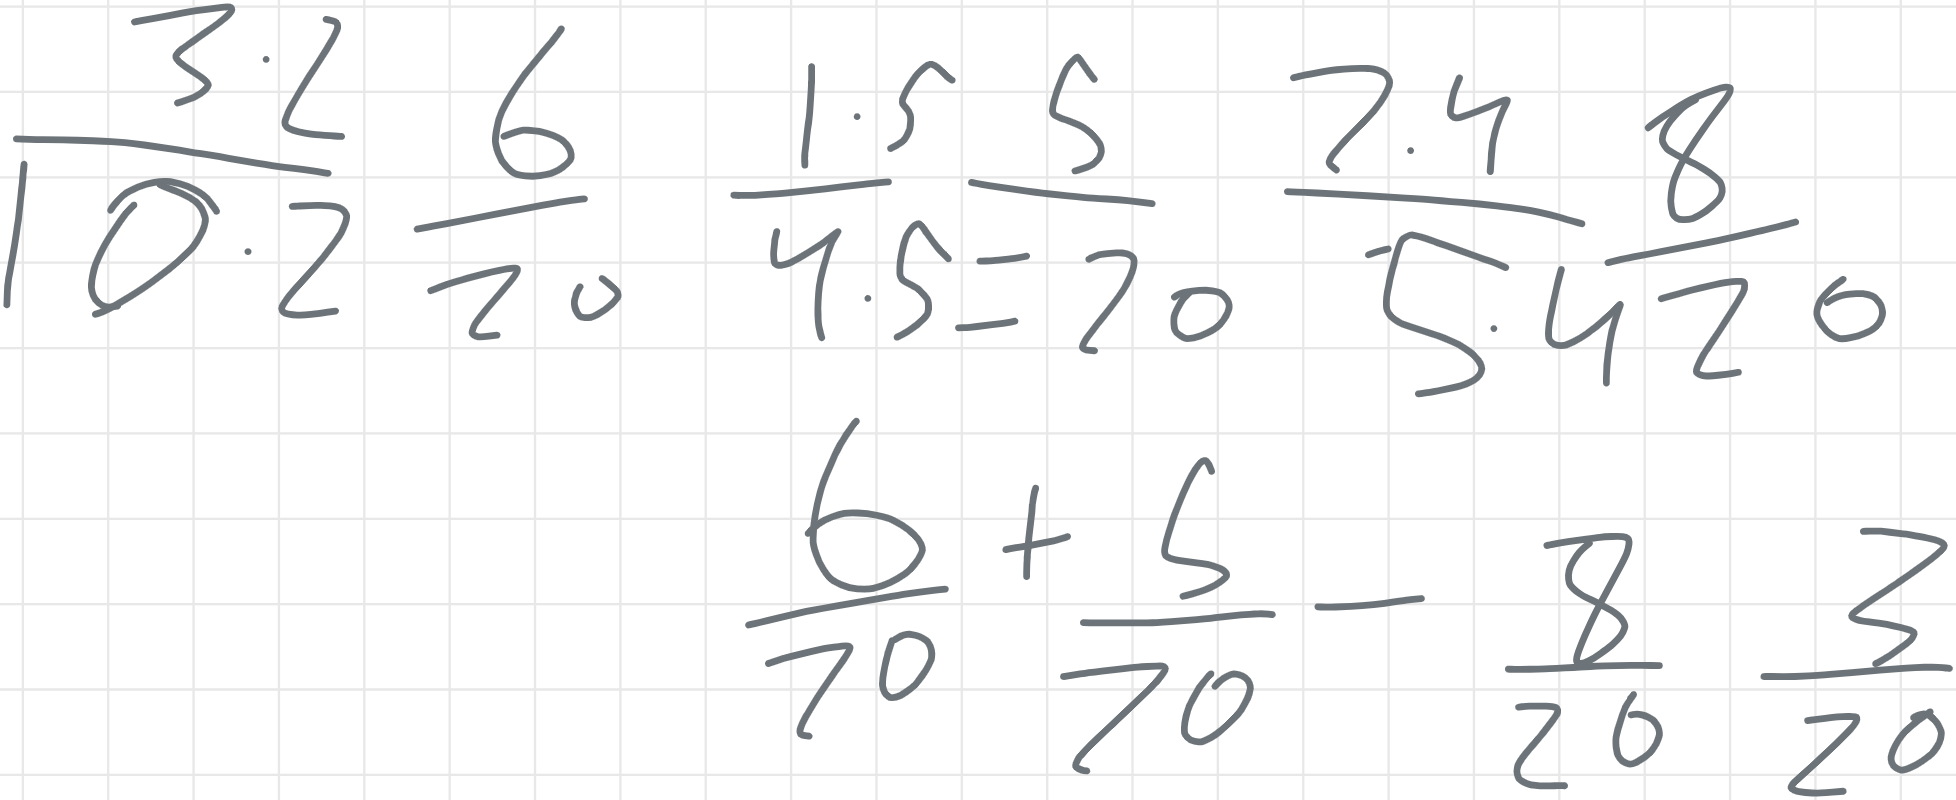 3·2/10·2 6/20 1·5/4·5 = 5/20 2·4/5·4 8/20
6/20 + 5/20 - 8/20 3/20